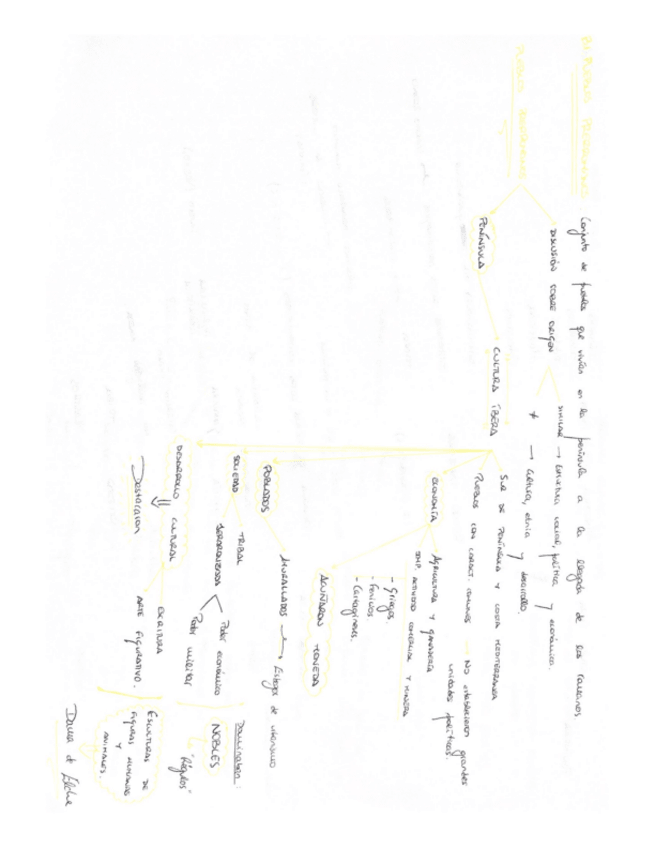 PUEBLOS PRERROMANOS
Conjunto de pueblos que vivían en la península a la llegada de los romanos
PUEBLOS PRERROMANOS
DISCUSIÓN SOBRE ORIGEN
SIMILAR → Estructura social, política y económica.
≠ → Cultura, etnia y desarrollo.
PENÍNSULA
CULTURA ÍBERA
SUR DE PENÍNSULA Y COSTA MEDITERRÁNEA
PUEBLOS CON CARACT. COMUNES → NO establecieron grandes
unidades políticas.
ECONOMÍA
AGRICULTURA Y GANADERÍA
IMP. ACTIVIDAD COMERCIAL Y MINERA
- Griegos
- Fenicios
- Cartagineses.
ACUÑARON MONEDA
POBLADOS
AMURALLADOS
SOCIEDAD
TRIBAL
JERARQUIZADA
Poder económico
Poder militar
Dominaban:
NOBLES
"Régulos"
DESARROLLO CULTURAL
Destacaron
ESCRITURA
ARTE FIGURATIVO.
ESCULTURAS DE
FIGURAS HUMANAS
Y
ANIMALES.
Dama de Elche